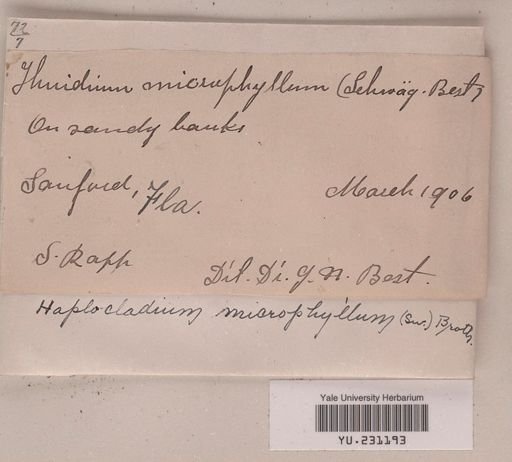 72
7
Thuidium microphyllum (Schwäg. Best)
On sandy banks
Sanford, Fla. March 1906
S. Rapp Dit. Dr. G. N. Best.
Haplocladium microphyllum (Sw.) Broth.
Yale University Herbarium
YU.231193